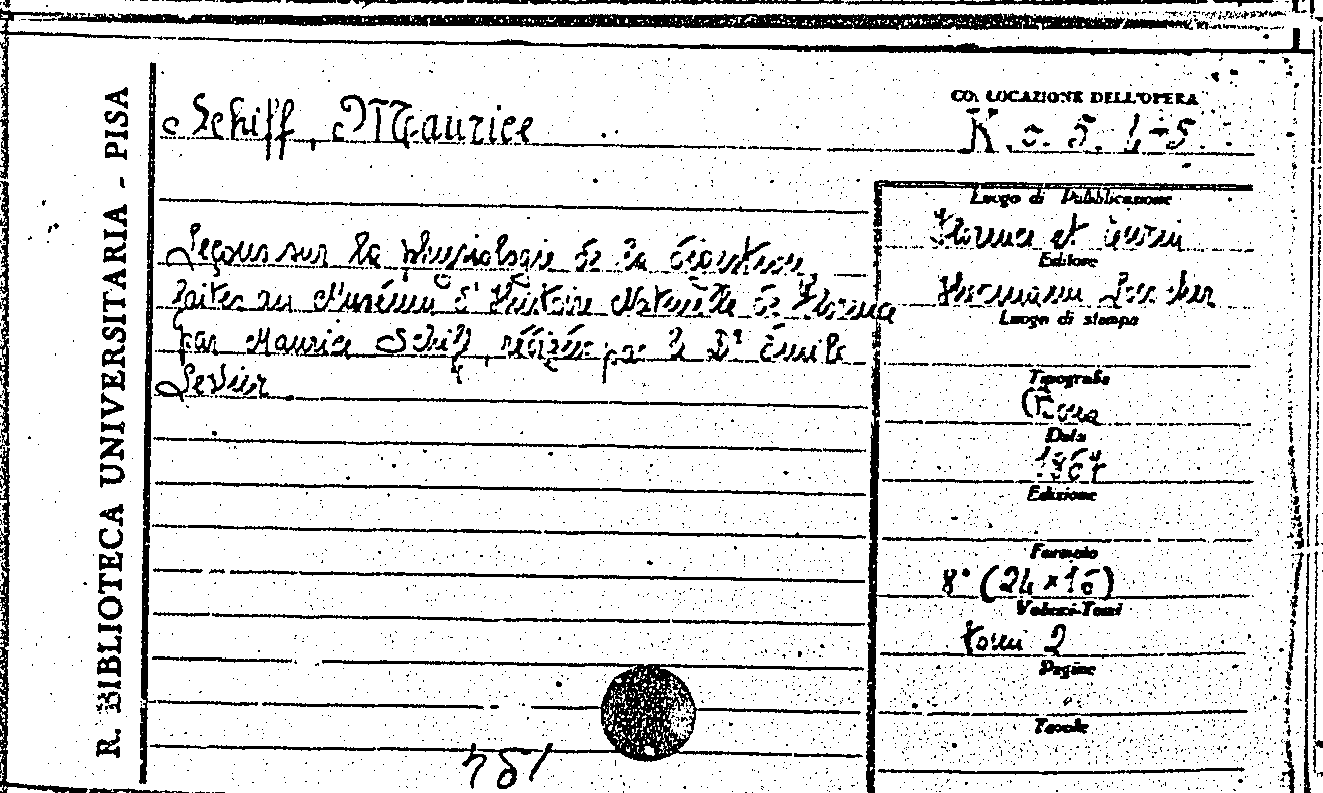 R. BIBLIOTECA UNIVERSITARIA - PISA
Schiff, Maurice
COLLOCAZIONE DELL'OPERA
K. 5. 1-5
Leçons sur la physiologie de la digestion,
faites au Muséum d'Histoire Naturelle de Florence
par Maurice Schiff, rédigées par le Dr Émile
Levier
Luogo di Pubblicazione
Florence et Turin
Editore
Hermann Loescher
Luogo di stampa
Tipografia
Data
1867
Edizione
Formato
8° (24 x 16)
Volumi-Tomi
tomi 2
Pagine
Tavole